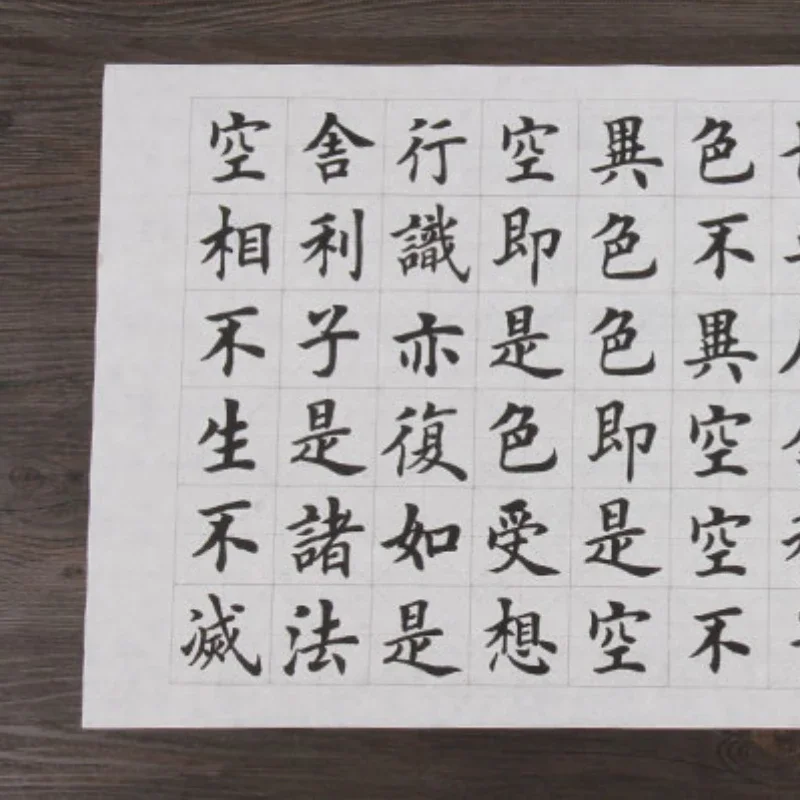 色不異空空不
異色色即是空
空即是色受想
行識亦復如是
舍利子是諸法
空相不生不滅